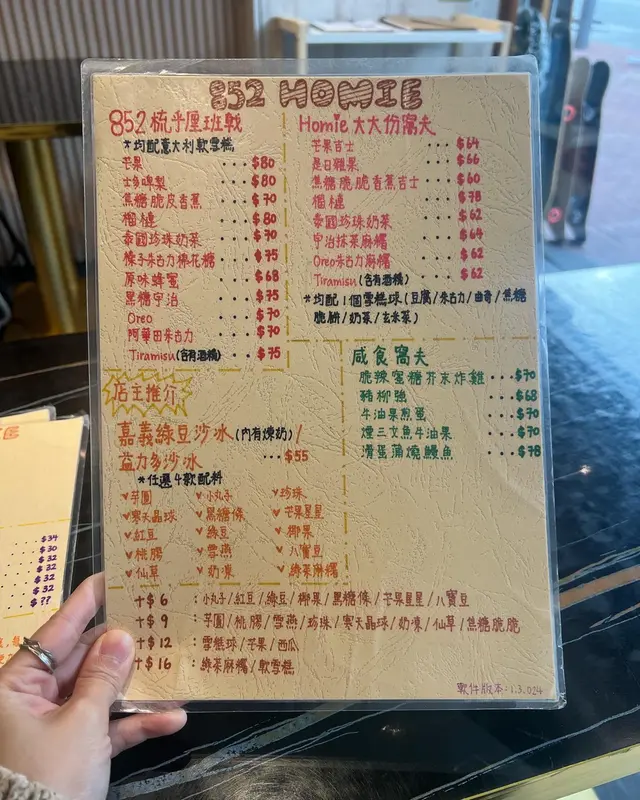 852 HOMIE
852 梳乎厘班戟
*均配意大利軟雪糕
芒果 ... $80
士多啤梨 .... $80
焦糖脆皮香蕉 ... $70
榴槤 .... $80
泰國珍珠奶茶 .... $70
榛子朱古力棉花糖 .... $75
原味蜂蜜 .... $68
黑糖宇治 .... $75
Oreo .... $70
阿華田朱古力 .... $70
Tiramisu (含有酒精) ... $75
Homie 大大份窩夫
芒果吉士 ... $64
是日雜果 ... $66
焦糖脆脆香蕉吉士 ... $60
榴槤 ... $78
泰國珍珠奶茶 ... $62
宇治抹茶麻糬 ... $64
Oreo朱古力麻糬 ... $62
Tiramisu (含有酒精) ... $62
*均配1個雪糕球 (豆腐/朱古力/曲奇/焦糖
脆餅/奶茶/玄米茶)
咸食窩夫
脆辣蜜糖芥末炸雞 ... $70
豬柳強 ... $68
牛油果煎蛋 ... $70
煙三文魚牛油果 ... $70
滑蛋蒲燒鰻魚 ... $78
店主推介
嘉義綠豆沙冰 (內有煉奶) /
益力多沙冰 ... $55
*任選4款配料
芋圓 小丸子 珍珠
寒天晶球 黑糖條 芒果星星
紅豆 綠豆 椰果
桃膠 雪燕 八寶豆
仙草 奶凍 綠茶麻糬
+$6 : 小丸子/紅豆/綠豆/椰果/黑糖條/芒果星星/八寶豆
+$9 : 芋圓/桃膠/雪燕/珍珠/寒天晶球/奶凍/仙草/焦糖脆脆
+$12 : 雪糕球/芒果/西瓜
+$16 : 綠茶麻糬/軟雪糕
軟件版本:1.3.024
$34
$30
$32
$32
$32
$32
$??